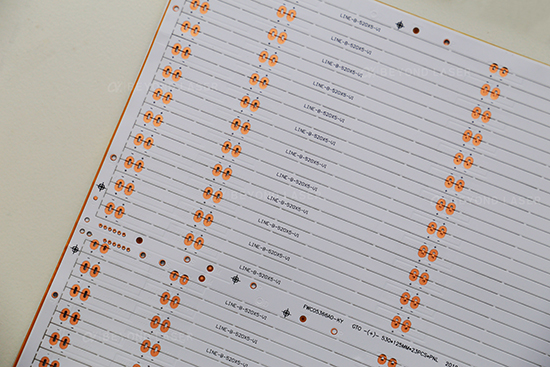 LINE-B-520X5-V1
LINE-B-520X5-V1
LINE-B-520X5-V1
LINE-B-520X5-V1
LINE-B-520X5-V1
LINE-B-520X5-V1
LINE-B-520X5-V1
LINE-B-520X5-V1
LINE-B-520X5-V1
LINE-B-520X5-V1
LINE-B-520X5-V1
LINE-B-520X5-V1
FWC05366A0-KY
LINE-B-520X5-V1
GTO -(+)- 530*125MM=23PCS=PNL
LINE-B-520X5-V1
LINE-B-520X5-V1